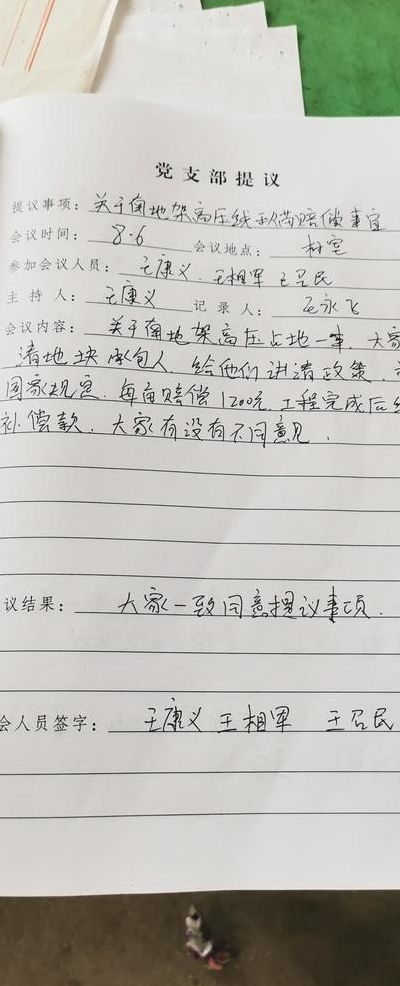 党支部提议
提议事项：关于南地架高压线占地赔偿事宜
会议时间：8.6 会议地点：村室
参加会议人员：王康义 王相军 王召民
主持人：王康义 记录人：王永飞
会议内容：关于南地架高压占地一事，大家
清地块承包人，给他们讲清政策，
国家规定，每亩赔偿1200元，工程完成后
补偿款，大家有没有不同意见．
议结果：大家一致同意提议事项．
会人员签字：王康义 王相军 王召民